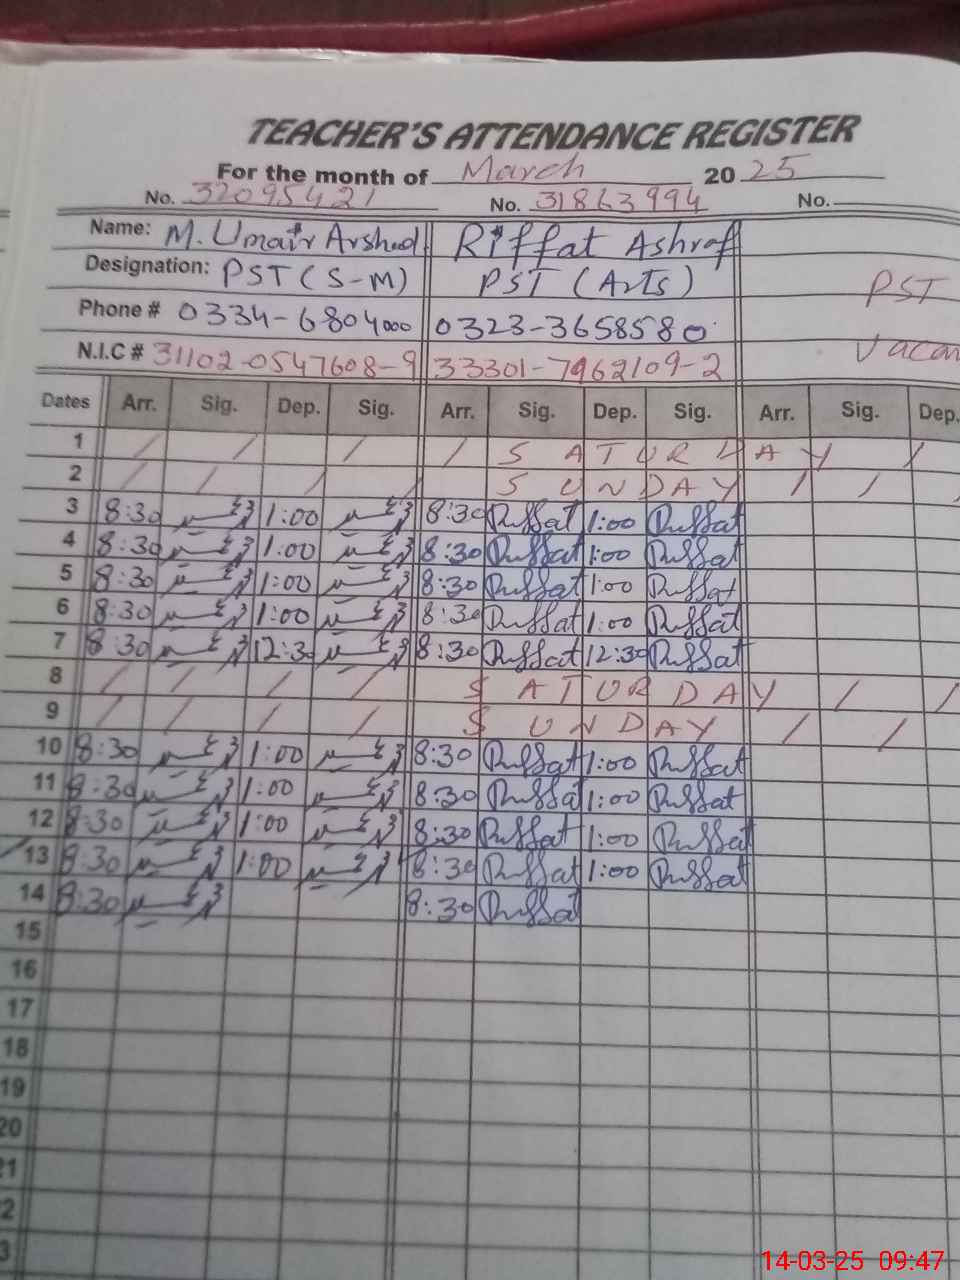 TEACHER'S ATTENDANCE REGISTER
For the month of March 2025
No. 32095421 No. 31863994 No.
Name: M. Umair Arshad Riffat Ashraf
Designation: PST (S-M) PST (Arts) PST
Phone # 0334-6804000 0323-3658580
N.I.C # 31102-0547608-9 33301-7962109-2 Vacan
Dates Arr. Sig. Dep. Sig. Arr. Sig. Dep. Sig. Arr. Sig. Dep.
1 / / / / SATURDAY /
2 / / / / SUNDAY / / /
3 8:30 1:00 8:30 Riffat 1:00 Riffat
4 8:30 1:00 8:30 Riffat 1:00 Riffat
5 8:30 1:00 8:30 Riffat 1:00 Riffat
6 8:30 1:00 8:30 Riffat 1:00 Riffat
7 8:30 12:30 8:30 Riffat 12:30 Riffat
8 / / / / SATURDAY / /
9 / / / / SUNDAY / /
10 8:30 1:00 8:30 Riffat 1:00 Riffat
11 8:30 1:00 8:30 Riffat 1:00 Riffat
12 8:30 1:00 8:30 Riffat 1:00 Riffat
13 8:30 1:00 8:30 Riffat 1:00 Riffat
14 8:30 8:30 Riffat
15
16
17
18
19
20
21
2
3
14-03-25 09:47